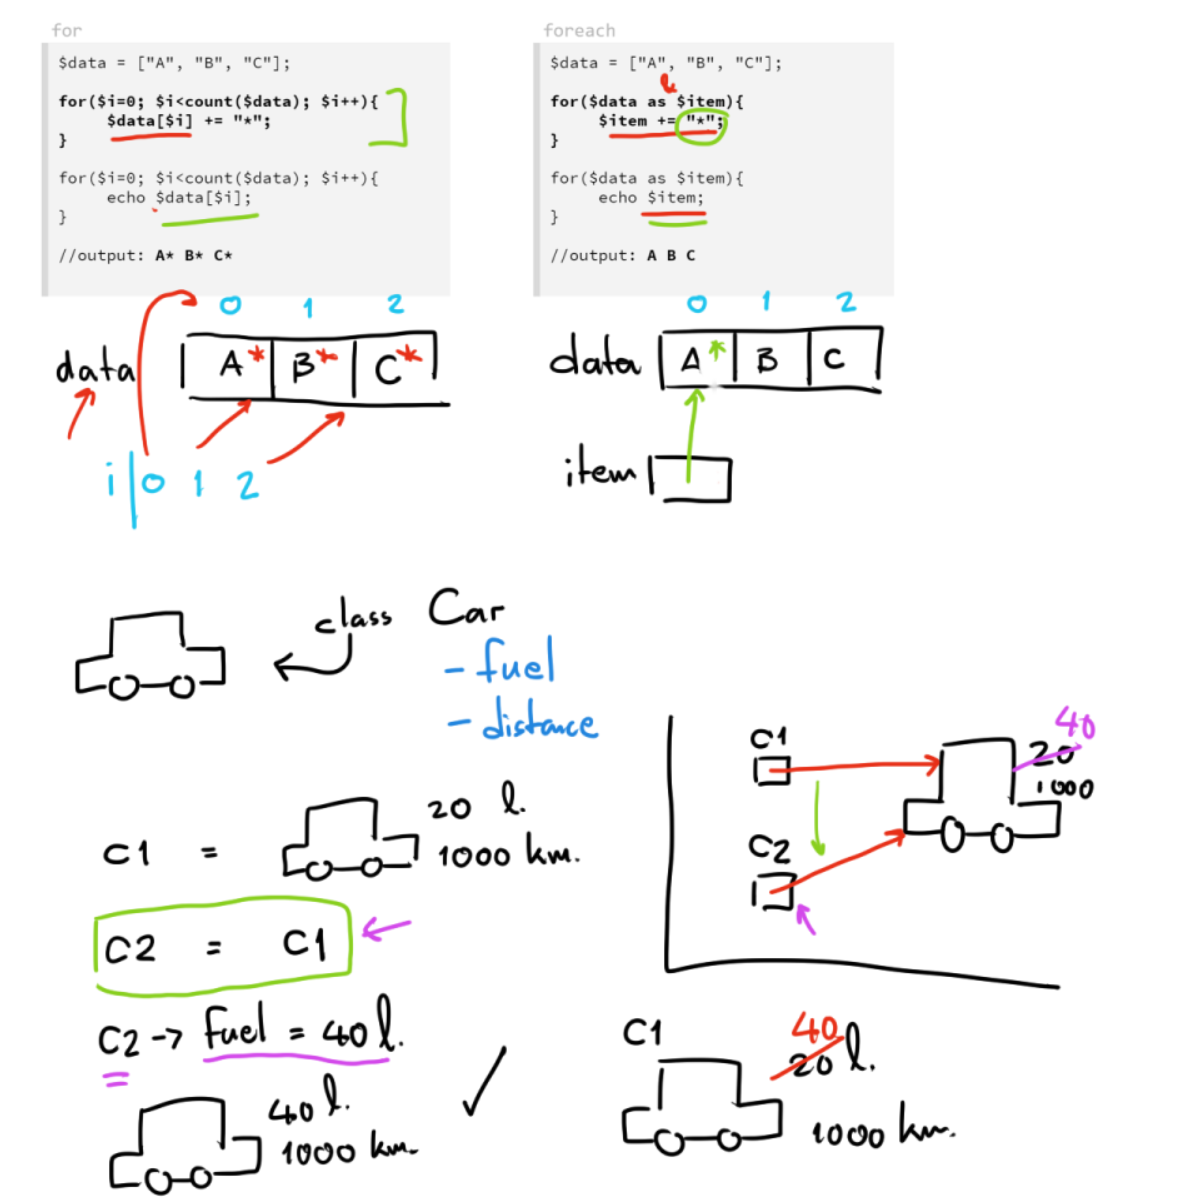 for
$data = ["A", "B", "C"];
for($i=0; $i<count($data); $i++){
$data[$i] += "*";
}
for($i=0; $i<count($data); $i++){
echo $data[$i];
}
//output: A* B* C*
0 1 2
data A* B* C*
i 0 1 2
foreach
$data = ["A", "B", "C"];
&
for($data as $item){
$item += "*";
}
for($data as $item){
echo $item;
}
//output: A B C
0 1 2
data A* B C
item
class Car
- fuel
- distance
C1 =
20 l.
1000 km.
C2 = C1
C2 -> Fuel = 40 l.
40 l.
1000 km.
C1
40
20
1000
C2
C1
40
20 l.
1000 km.